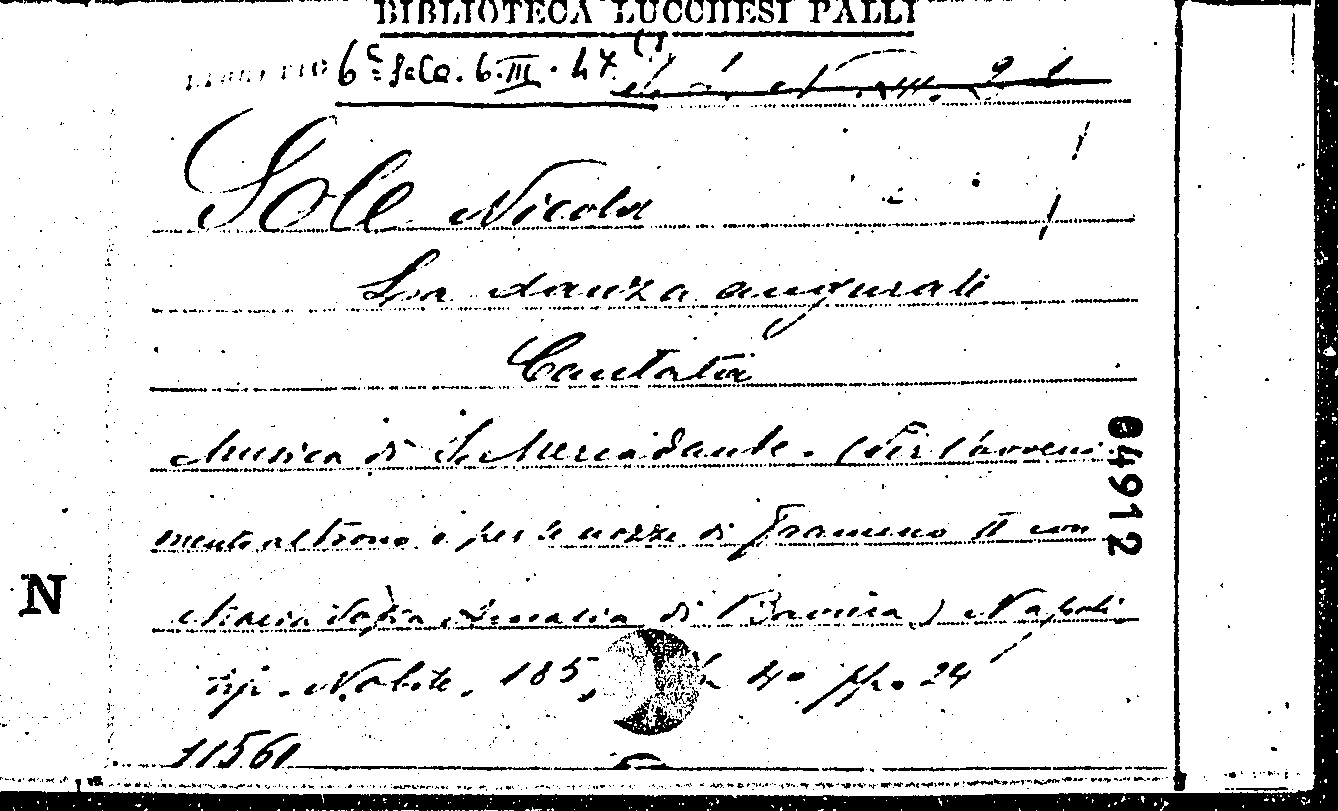 BIBLIOTECA LUCCHESI PALLI
LIBRETTO 6ᵃ Sala. 6.III.47.(1)
Sole Nicola
La danza augurale
Cantata
Musica di S. Mercadante. (Per l'avveni-
mento al trono e per le nozze di Francesco II con
Maria Sofia Amalia di Baviera) Napoli,
tip. Nobile, 185 4° pp. 24
11561
04912
N